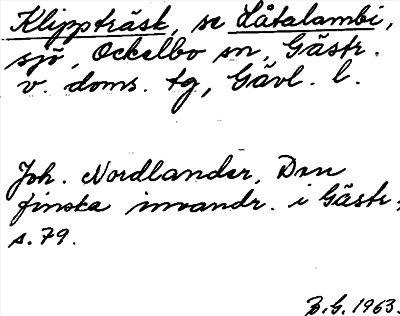 Klippträsk, se Låtalambi,
sjö, Ockelbo sn, Gästr.
v. doms. tg, Gävl. l.
Joh. Nordlander, Den
finska invandr. i Gästr.,
s. 79.
B.G. 1963.